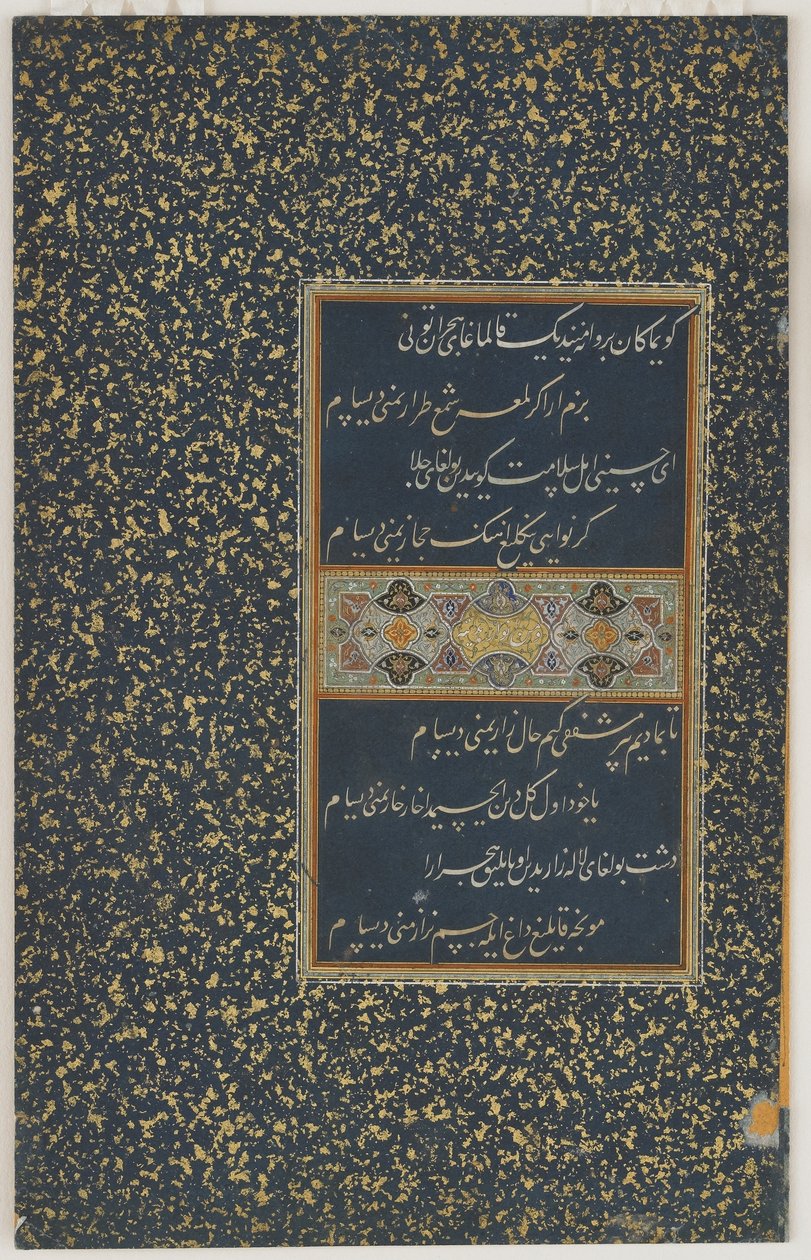 کویماکان پروانه دیک قالماغای هجران تونی
بزم ارا کر لمعه شمع طرازیمنی دیسام
ای حسینی اهل سلامت کوییدین بولغای جلا
کر نوایی ینکلیغ آهنک حجازیمنی دیسام
تابمادیم بر مشفقی کیم حال زاریمنی دیسام
یا خود اول کل دین ایچیمدا خار خاریمنی دیسام
دشت بولغای لاله زاریدین هجر ارا
مونجه قانلیغ داغ ایله جسم نزاریمنی دیسام